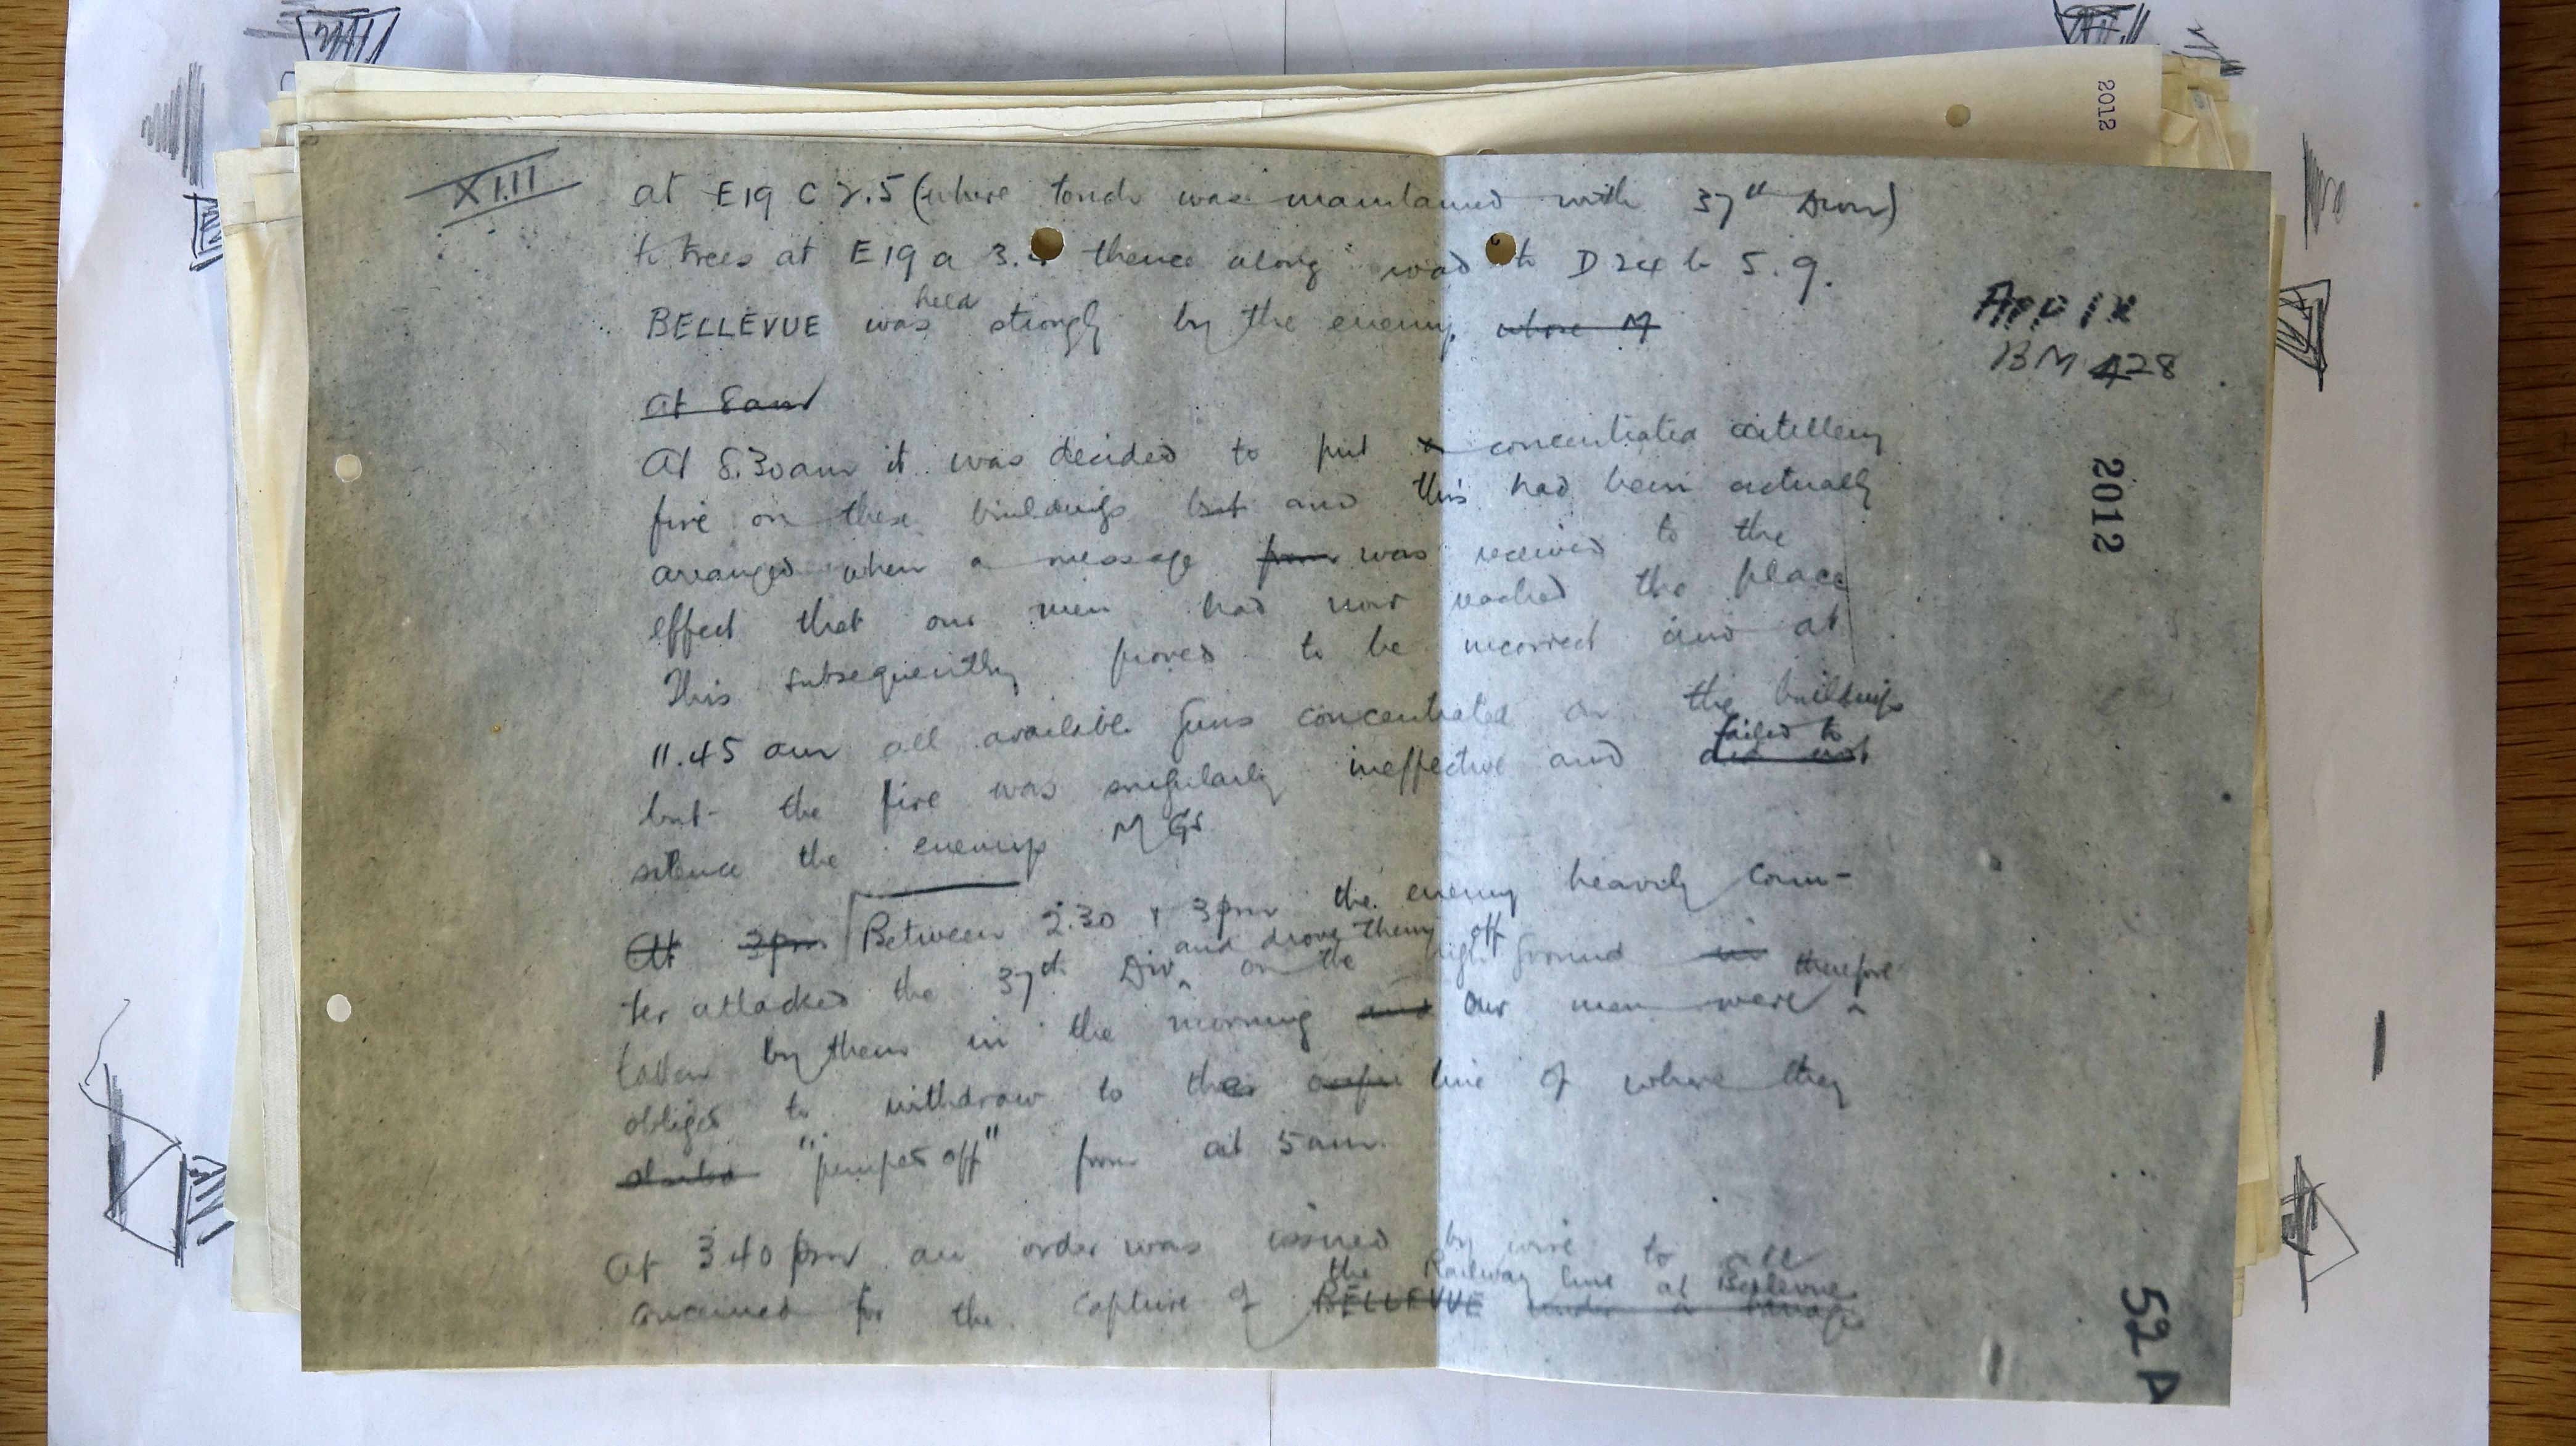 XIII
at E19 C 2.5 (where touch was maintained with 37th Divn)
to trees at E19 a 3. thence along road to D24 b 5.9.
held
BELLEVUE was strongly by the enemy. whose M
App IX
BM 428
2012
2012
At 8am
At 8.30am it was decided to put a concentrated artillery
fire on these buildings but and this had been actually
arranged when a message from was received to the
effect that our men had now reached the place
This subsequently proved to be incorrect and at
11.45 am all available guns concentrated on the buildings
failed to
but the fire was singularly ineffective and did not
silence the enemys MGs
At 3pm Between 2.30 & 3pm the enemy heavily coun-
and drove them off
ter attacked the 37th Div on the high ground in
therefore
taken by them in the morning and our men were
obliged to withdraw to the line of where they
"jumped off" from at 5am.
At 3 40 pm an order was issued by wire to all
the Railway line at Bellevue
concerned for the capture of BELLEVUE under a barrage
52A